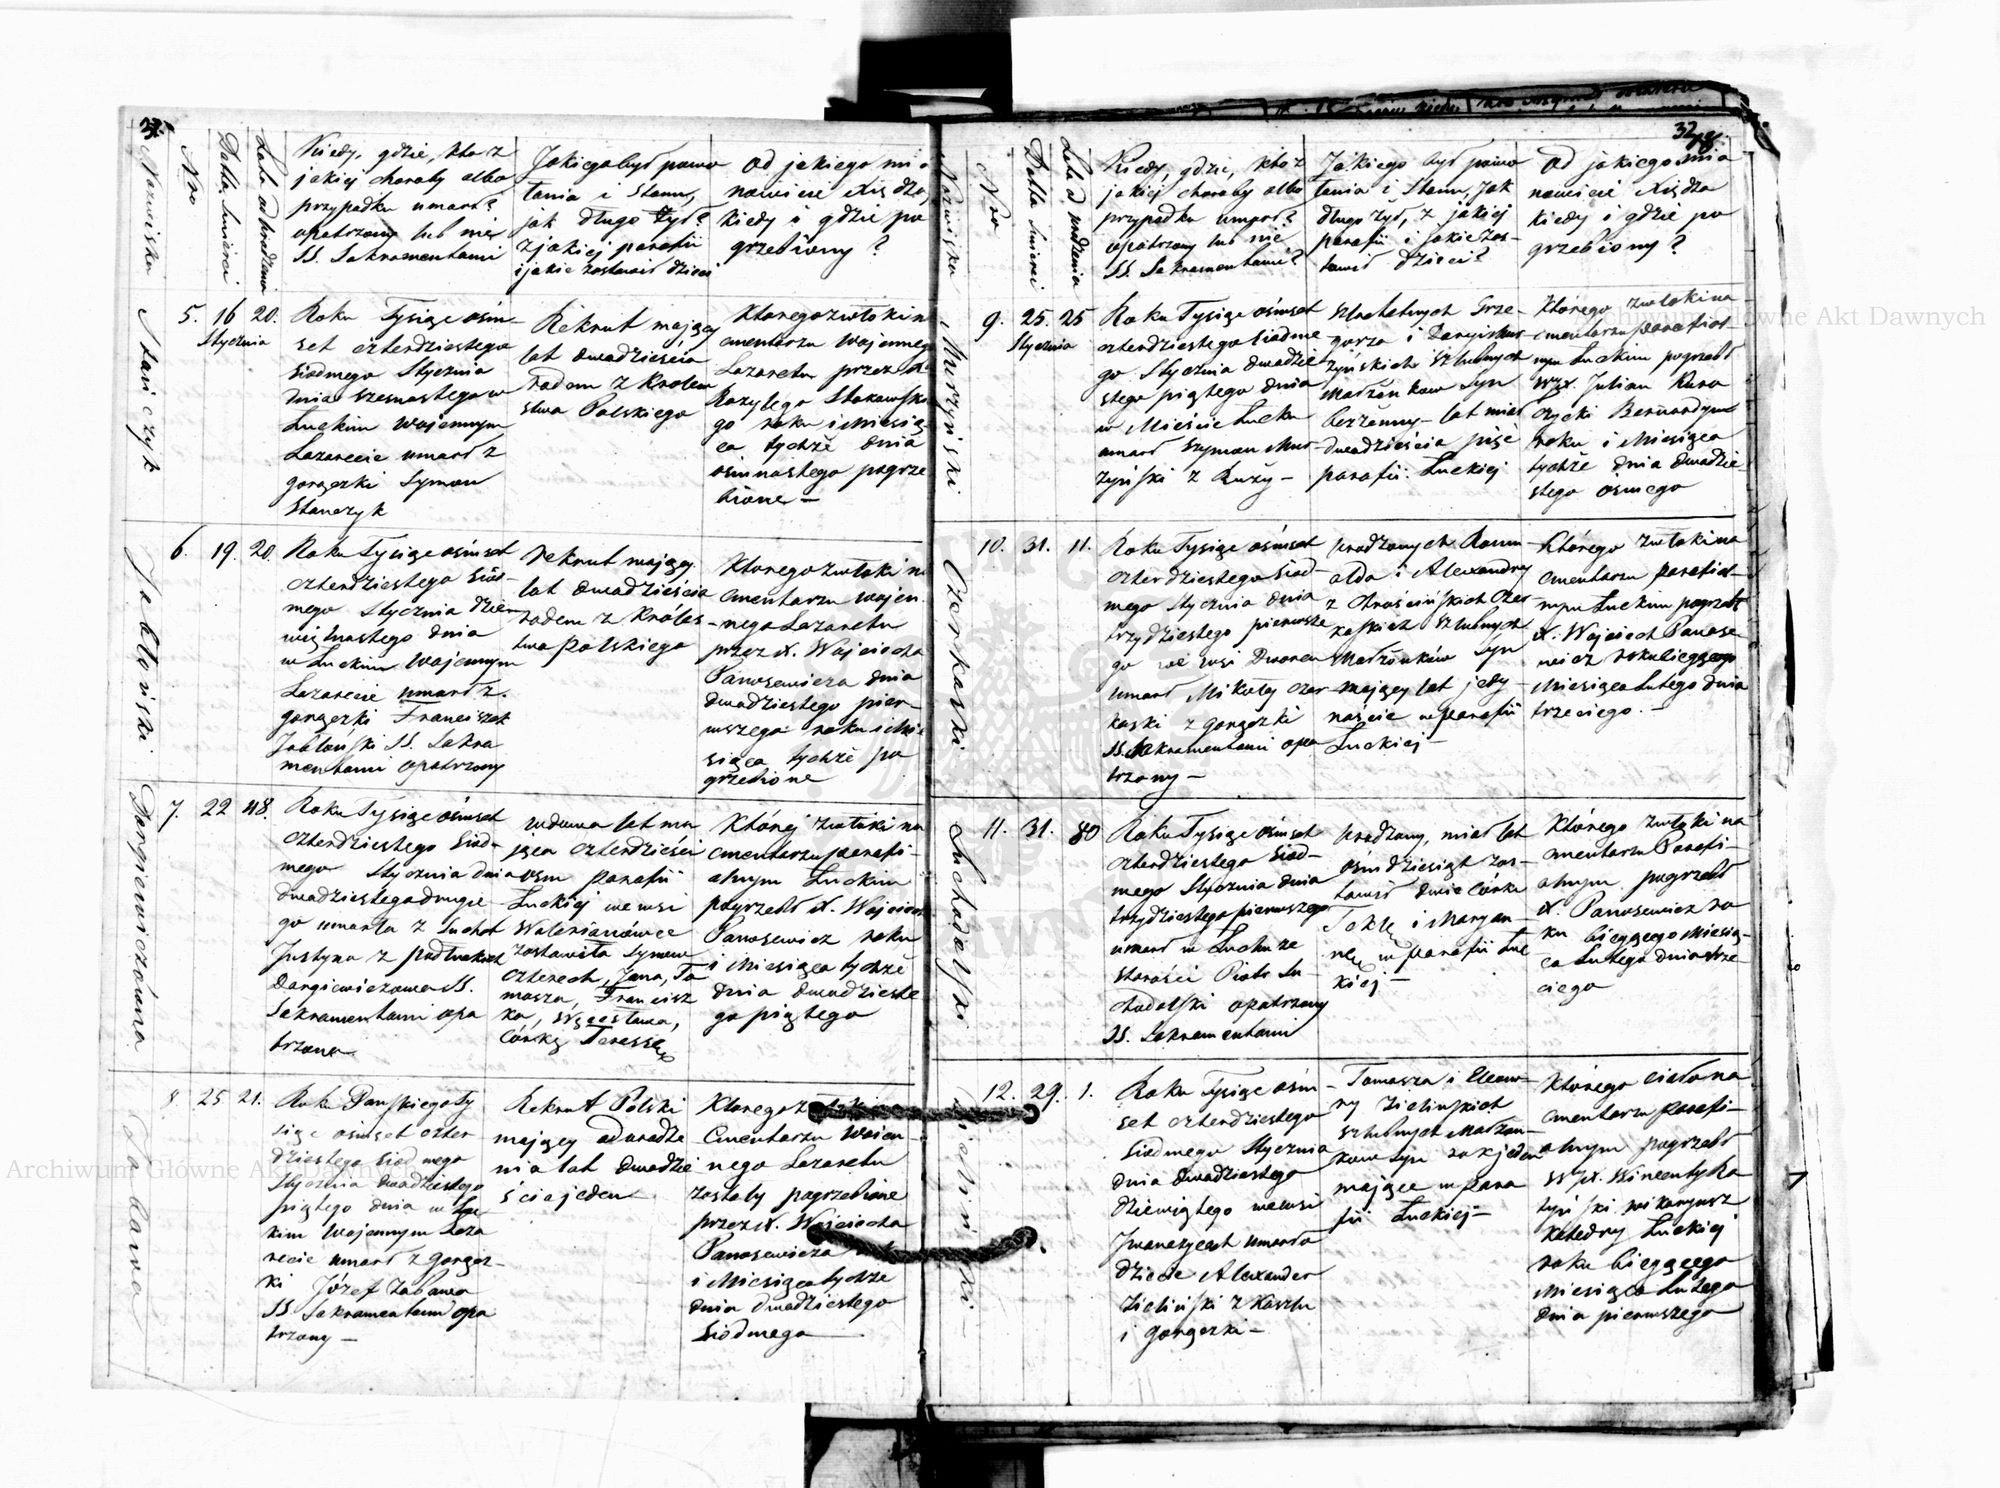 Nazwiska
Nro
Datta śmierci
Lata od urodzenia
Kiedy, gdzie, kto z
jakiej choroby albo
przypadku umarł?
opatrzony lub nie
SS. Sakramentami
Jakiego był powo
łania i stanu,
jak długo żył?
z jakiej parafii
i jakie zostawił dzieci
Od jakiego mia
nowicie Xiędza
kiedy i gdzie po
grzebiony?
Stańczyk
5.
16
Stycznia
20.
Roku Tysiąc ośm-
set czterdziestego
siódmego Stycznia
dnia szesnastego w
Łuckim Wojennym
Lazarecie umarł z
gorączki Symon
Stańczyk
Rekrut mający
lat dwadzieścia
rodem z Krolew
stwa Polskiego
Ktorego zwłoki n
cmentarzu Wojennego
Lazaretu przez X.
go roku i Miesią-
ca tychże dnia
osimnastego pogrze
bione —
Jabłoński
6.
19.
20.
Roku Tysiąc ośmset
czterdziestego siód-
mego Stycznia dzie
więtnastego dnia
w Łuckim Wojennym
Lazarecie umarł z
gorączki Franciszek
Jabłoński SS. Sakra
mentami opatrzony
rekrut mający
lat dwadzieścia
rodem z Króles-
twa Polskiego
Ktorego zwłoki na
cmentarzu wojen
nego Lazaretu
przez X. Wojciecha
Panosewicza dnia
dwadziestego pier-
wszego roku i Mie
siąca tychże po
grzebione
Dorgiewiczowa
7.
22
48.
Roku Tysiąc ośmset
czterdziestego Siód-
mego Stycznia dnia
dwadziestego drugie
go umarła z Suchot
Justyna z
Dorgiewiczowa SS.
Sakramentami opa
trzona
wdowa lat ma
jąca czterdzieści
osm parafii
Łuckiej we wsi
Walerianówce
zostawiła synów
czterech, Jana, To
masza, Francisz
ka, Więcsława,
Córkę Teresse
Której zwłoki na
cmentarzu parafi-
alnym Łuckim
pogrzebł X. Wojciech
Panosewicz roku
i Miesiąca tychże
dnia dwadzieste
go piątego
Zabawa
8
25
21.
Roku Pańskiego Ty
siąc ośmset czter
dziestego siodmego
Stycznia dwadziestego
piątego dnia w Łuc
kim Wojennym Laza
recie umarł z gorącz-
ki Józef Zabawa
SS. Sakramentami opa
trzony —
Rekrut Polski
mający od urodze
nia lat dwadzie
ścia jeden
Ktorego zwłoki
Cmentarzu Wojen-
nego Lazaretu
zostały pogrzebione
przez X. Wojciecha
Panosewicza
i Miesiąca tychże
dnia dwadziestego
siódmego —
32
Nazwiska
Nro
Datta śmierci
Lata od urodzenia
Kiedy, gdzie, kto z
jakiej choroby albo
przypadku umarł?
opatrzony lub nie
SS. Sakramentami?
Jakiego był powo
łania i Stanu, jak
długo żył, z jakiej
parafii i jakie zos-
tawił dzieci?
Od jakiego mia
nowicie Xiędza
kiedy i gdzie po
grzebiony?
Murzyński
9.
25.
Stycznia
25
Roku Tysiąc ośmset
czterdziestego siódme
go Stycznia dwadzie
stego piątego dnia
w Mieście Łucku
umarł Szymon Mur-
zyński z Ruży —
Szlachetnych Grze-
gorza i
żyńskich szlubnych
Małżonkow Syn
bezżenny lat miał
dwadzieścia pięć
parafii Łuckiej
Którego zwłoki na
cmentarzu parafial
nym Łuckim pogrzebł
WX. Julian Kuro
czycki Bernardyn
roku i Miesiąca
tychże dnia dwadzie
stego osmego
Czerkaski
10.
31.
11.
Roku Tysiąc ośmset
czterdziestego siód-
mego Stycznia dnia
trzydziestego pierwsze
go we wsi Dworcu
umarł Mikołaj Czer
kaski z gorączki
SS. Sakramentami opa
trzony —
urodzonych Romu-
alda i Alexandry
z Czer
kaskich szlubnych
Małżonków Syn
mający lat jedy
naście w parafii
Łuckiej —
Którego zwłoki na
cmentarzu parafial-
nym Łuckim pogrzebł
X. Wojciech Panose
wicz roku bieżącego
Miesiąca Lutego dnia
trzeciego. —
Suchodolski
11.
31.
80
Roku Tysiąc ośmset
czterdziestego Siód-
mego Stycznia dnia
trzydziestego pierwszego
umarł w Łucku ze
starości Piotr Su
chodolski opatrzony
SS. Sakramentami
Urodzony, miał lat
ośmdziesiąt zos-
tawił dwie Córki
Teklę i Maryan-
nę w parafii Łuc
kiej —
Którego zwłoki na
cmentarzu Parafi-
alnym pogrzebł
X. Panosewicz ro
ku bieżącego Miesią-
ca Lutego dnia trze
ciego
Zieliński
12.
29.
1.
Roku Tysiąc ośm
set czterdziestego
siódmego Stycznia
dnia dwadziestego
dziewiątego we wsi
Iwanczycach umarło
dziecie Alexander
Zieliński z Kaszlu
i gorączki —
Tomasza i Eleono-
ry Zielińskich
szlubnych Małżon-
kow Syn rok jeden
mające w para
fii Łuckiej —
Którego ciało na
cmentarzu parafi-
alnym pogrzebł
WJX. Wincenty
wikaryusz
Katedry Łuckiej
roku bieżącego
Miesiąca Lutego
dnia pierwszego
Archiwum Główne Akt Dawnych
Archiwum Główne Akt Dawnych